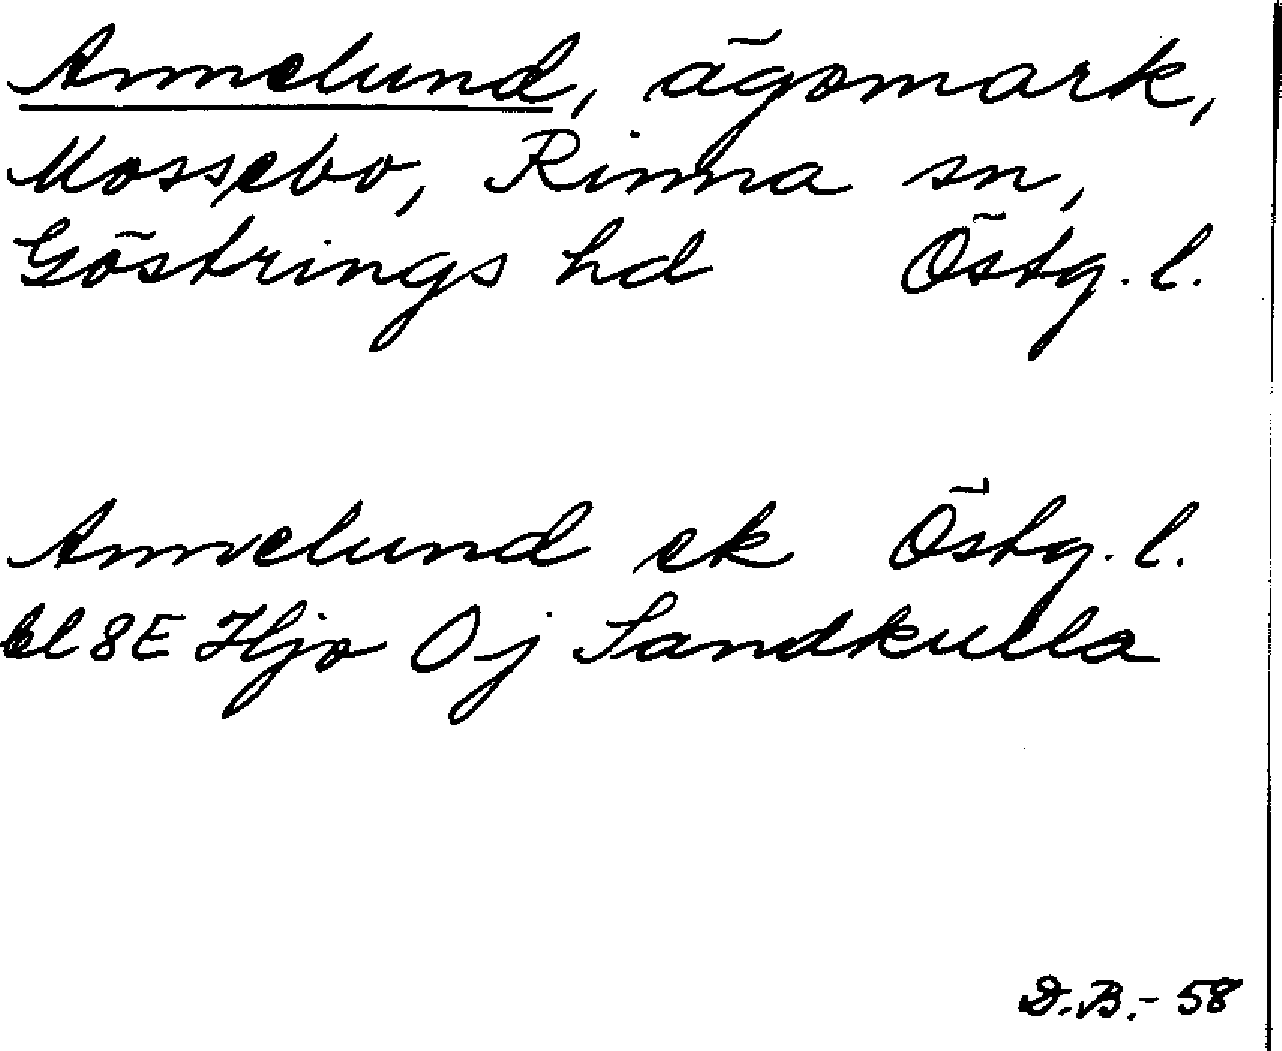 Annelund, ägomark,
Mossebo, Rinna sn,
Göstrings hd Östg. l.
Annelund ek Östg. l.
bl 8E Hjo 0j Sandkulla
D.B.- 58